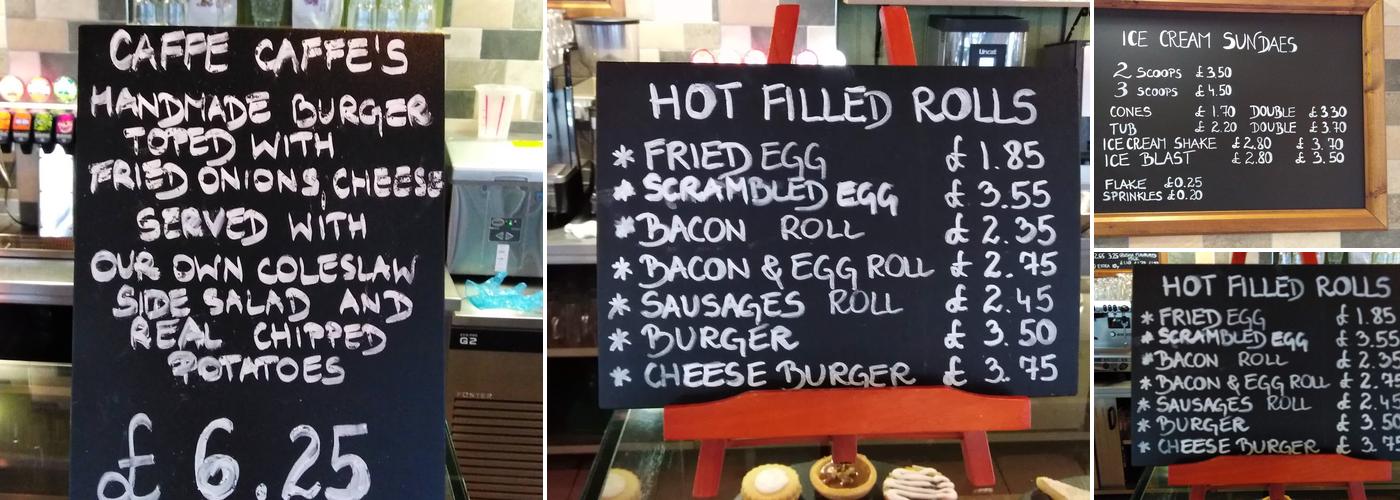 CAFFE CAFFE'S
HANDMADE BURGER
TOPED WITH
FRIED ONIONS, CHEESE
SERVED WITH
OUR OWN COLESLAW
SIDE SALAD AND
REAL CHIPPED
POTATOES
£ 6.25
FOSTER
G2
Uncat
HOT FILLED ROLLS
* FRIED EGG £ 1.85
* SCRAMBLED EGG £ 3.55
* BACON ROLL £ 2.35
* BACON & EGG ROLL £ 2.75
* SAUSAGES ROLL £ 2.45
* BURGER £ 3.50
* CHEESE BURGER £ 3.75
ICE CREAM SUNDAES
2 SCOOPS £3.50
3 SCOOPS £4.50
CONES £ 1.70 DOUBLE £3.30
TUB £ 2.20 DOUBLE £3.70
ICE CREAM SHAKE £2.80 £ 3.70
ICE BLAST £2.80 £ 3.50
FLAKE £0.25
SPRINKLES £0.20
HOT FILLED ROLLS
* FRIED EGG £ 1.85
* SCRAMBLED EGG £ 3.55
* BACON ROLL £ 2.35
* BACON & EGG ROLL £ 2.75
* SAUSAGES ROLL £ 2.45
* BURGER £ 3.50
* CHEESE BURGER £ 3.7